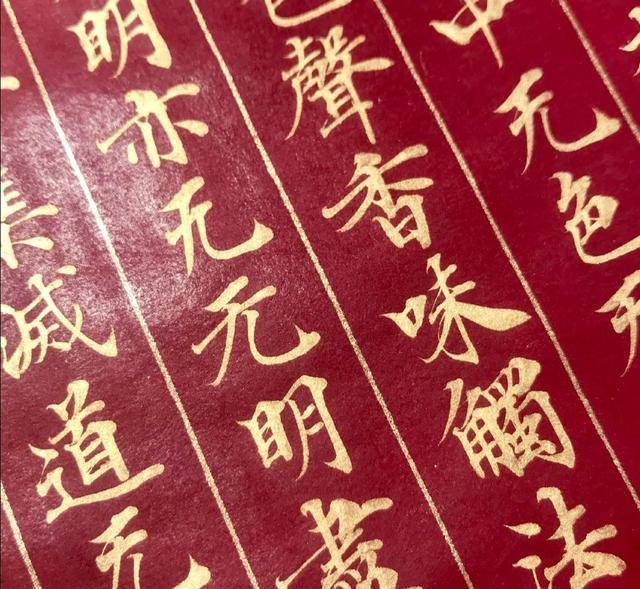 中无色无
色聲香味觸法
明亦无无明盡
集滅道无